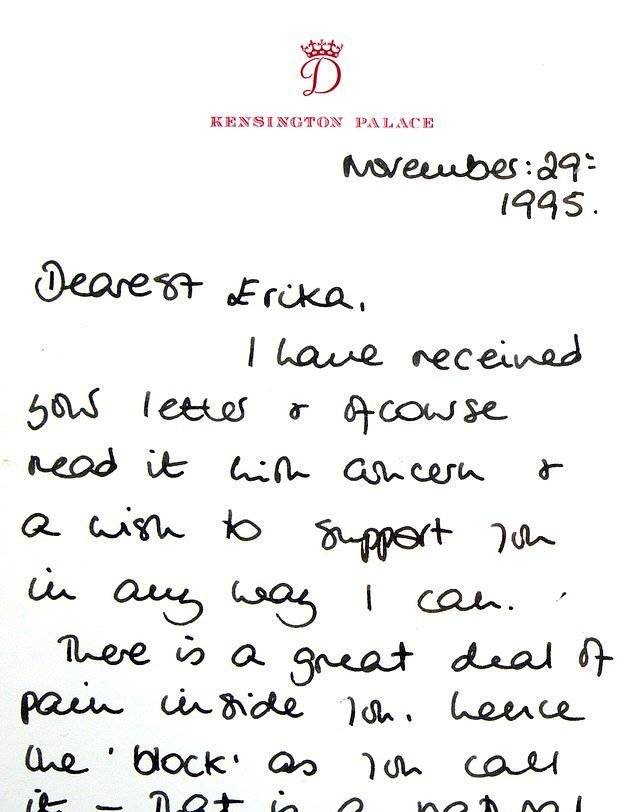 D
KENSINGTON PALACE
November: 29:
1995.
Dearest Erika,
I have received
your letter & ofcourse
read it with concern &
a wish to support you
in any way I can.
There is a great deal of
pain inside you. hence
the 'block' as you call
it - That is a natural